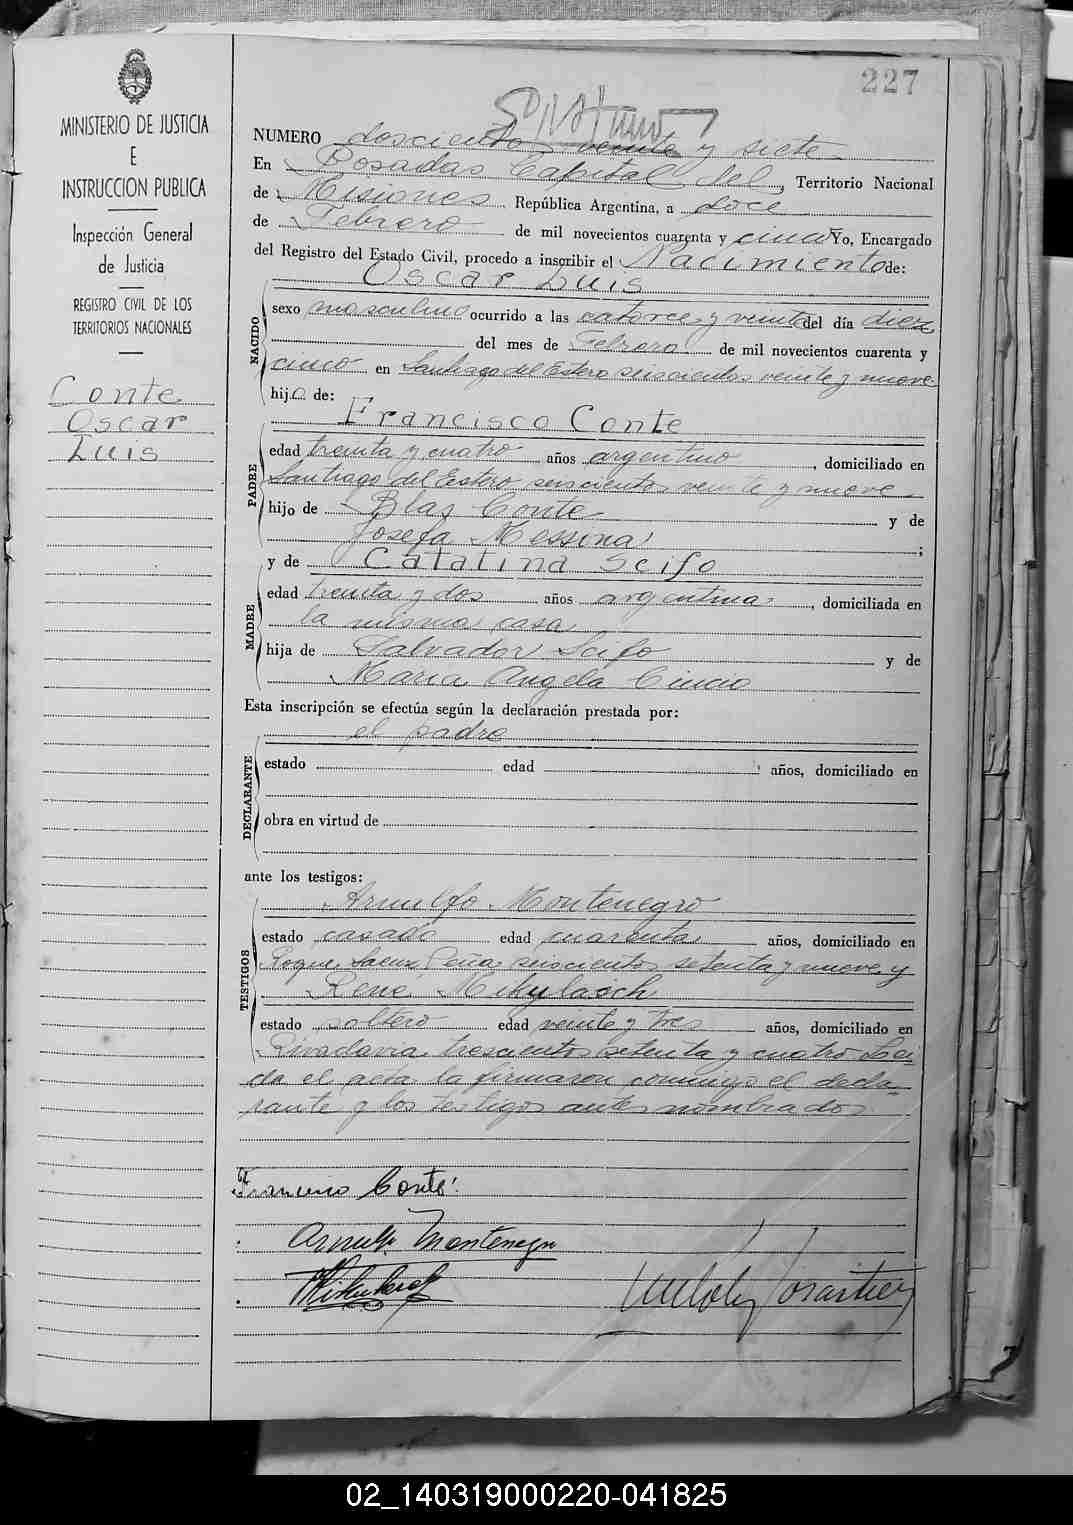 227
MINISTERIO DE JUSTICIA
E
INSTRUCCION PUBLICA
Inspección General
de Justicia
REGISTRO CIVIL DE LOS
TERRITORIOS NACIONALES
Conte
Oscar
Luis
NUMERO doscientos veinte y siete
En Posadas Capital del, Territorio Nacional
de Misiones República Argentina, a doce
de Febrero de mil novecientos cuarenta y cinco Yo, Encargado
del Registro del Estado Civil, procedo a inscribir el Nacimiento de:
Oscar Luis
NACIDO
sexo masculino ocurrido a las catorce y veinte del día diez
del mes de Febrero de mil novecientos cuarenta y
cinco en Santiago del Estero seiscientos veinte y nueve
hijo de:
Francisco Conte
PADRE
edad treinta y cuatro años argentino, domiciliado en
Santiago del Estero seiscientos veinte y nueve
hijo de Blas Conte y de
Josefa Messina;
y de Catalina Scifo
MADRE
edad treinta y dos años argentina, domiciliada en
la misma casa
hija de Salvador Scifo y de
Maria Angela
Esta inscripción se efectúa según la declaración prestada por:
el padre
DECLARANTE
estado edad años, domiciliado en
obra en virtud de
ante los testigos:
TESTIGOS
Arnulfo Montenegro
estado casado edad cuarenta años, domiciliado en
Roque Saenz Peña seiscientos setenta y nueve y
Rene Mikylasch
estado soltero edad veinte y tres años, domiciliado en
Rivadavia trescientos setenta y cuatro Lei-
da el acta la firmaron conmigo el decla-
rante y los testigos antes nombrados
Francisco Conte
Arnulfo Montenegro
02_140319000220-041825